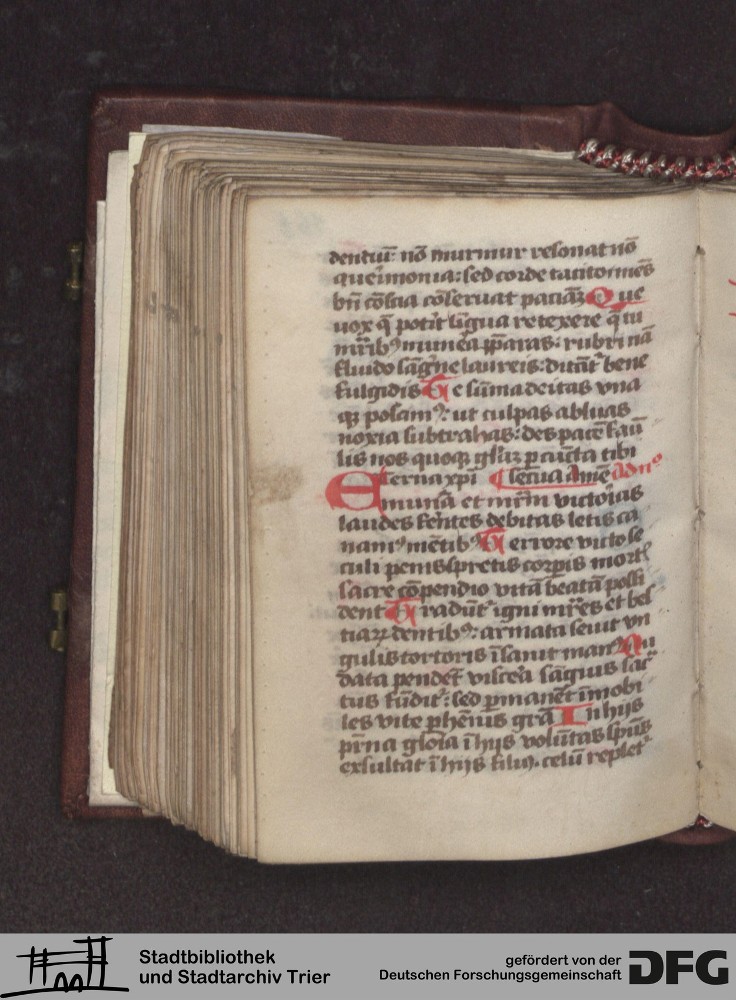 dentiũ: nõ murmur resonat nõ
querimonia: sed corde tacito mẽs
bñ cõscia cõseruat paciãz Que
uox q̃ potit ligua retexere q̃ tu
mrĩbꝰ munera p̃paras: rubri nã
fluido sãgĩne laureis: ditãtᷣ bene
fulgidis Te sũma deitas vna
qꝫ poscimꝰ: ut culpas abluas
noxia subtrahas: des pacẽ fãu
lis nos quoqꝫ glĩaz p cũcta tibi
Eterna xpĩ secũla Amẽ
munã et mrm̃ victorias
laudes ferẽtes debitas letis ca
namꝰ mẽtibꝰ Terrore victo se
culi penis spretis corp̃is mortᷤ
sacre cõpendio vitã beatã possi
dent Tradũtᷣ igni mr̃es et bes
tiaꝝ dentibꝰ: armata seuit vn
gulis tortoris ĩsani manꝰ Nu
data pendẽt viscẽa sãguis sac̃
tus fũditᷣ: sed p̃manẽt ĩmobi
les vite phẽnis grã In hijs
pr̃na gloĩa ĩ hijs volũtas sp̃us
exsultat ĩ hijs filiꝰ. celũ repletᷣ
Stadtbibliothek
und Stadtarchiv Trier
gefördert von der
Deutschen Forschungsgemeinschaft
DFG